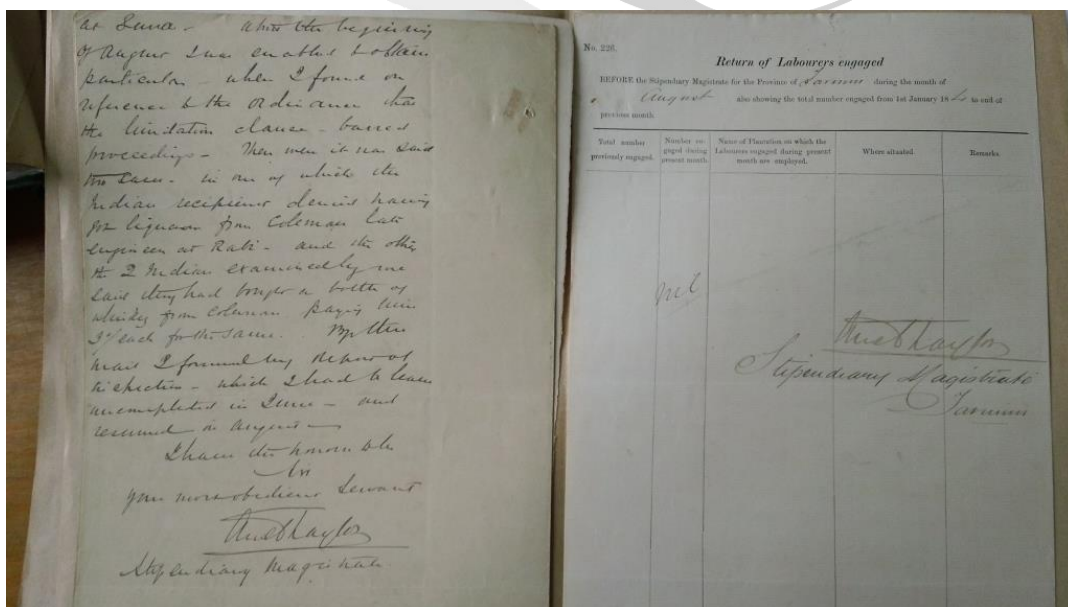 at Suva - about the beginning
of August I was enabled to obtain
particulars - when I found on
reference to the Ordinance that
the limitation clause - barred
proceedings - there were it was said
two cases - in one of which the
Indian recipient denied having
got liquor from Coleman late
engineer at Rabi - and the other
the 2 Indians examined by me
said they had bought a bottle of
whisky from Coleman paying him
3/ each for the same. By this
mail I forward my report of
inspection - which I had to leave
uncompleted in June - and
resumed in August -
I have the honour to be
Sir
Your most obedient Servant
Taylor
Stipendiary Magistrate.
No. 226.
Return of Labourers engaged
BEFORE the Stipendiary Magistrate for the Province of during the month of
August also showing the total number engaged from 1st January 18 to end of
previous month.
Total number previously engaged.
Number engaged during present month.
Name of Plantation on which the Labourers engaged during present month are employed.
Where situated.
Remarks
nil
Taylor
Stipendiary Magistrate